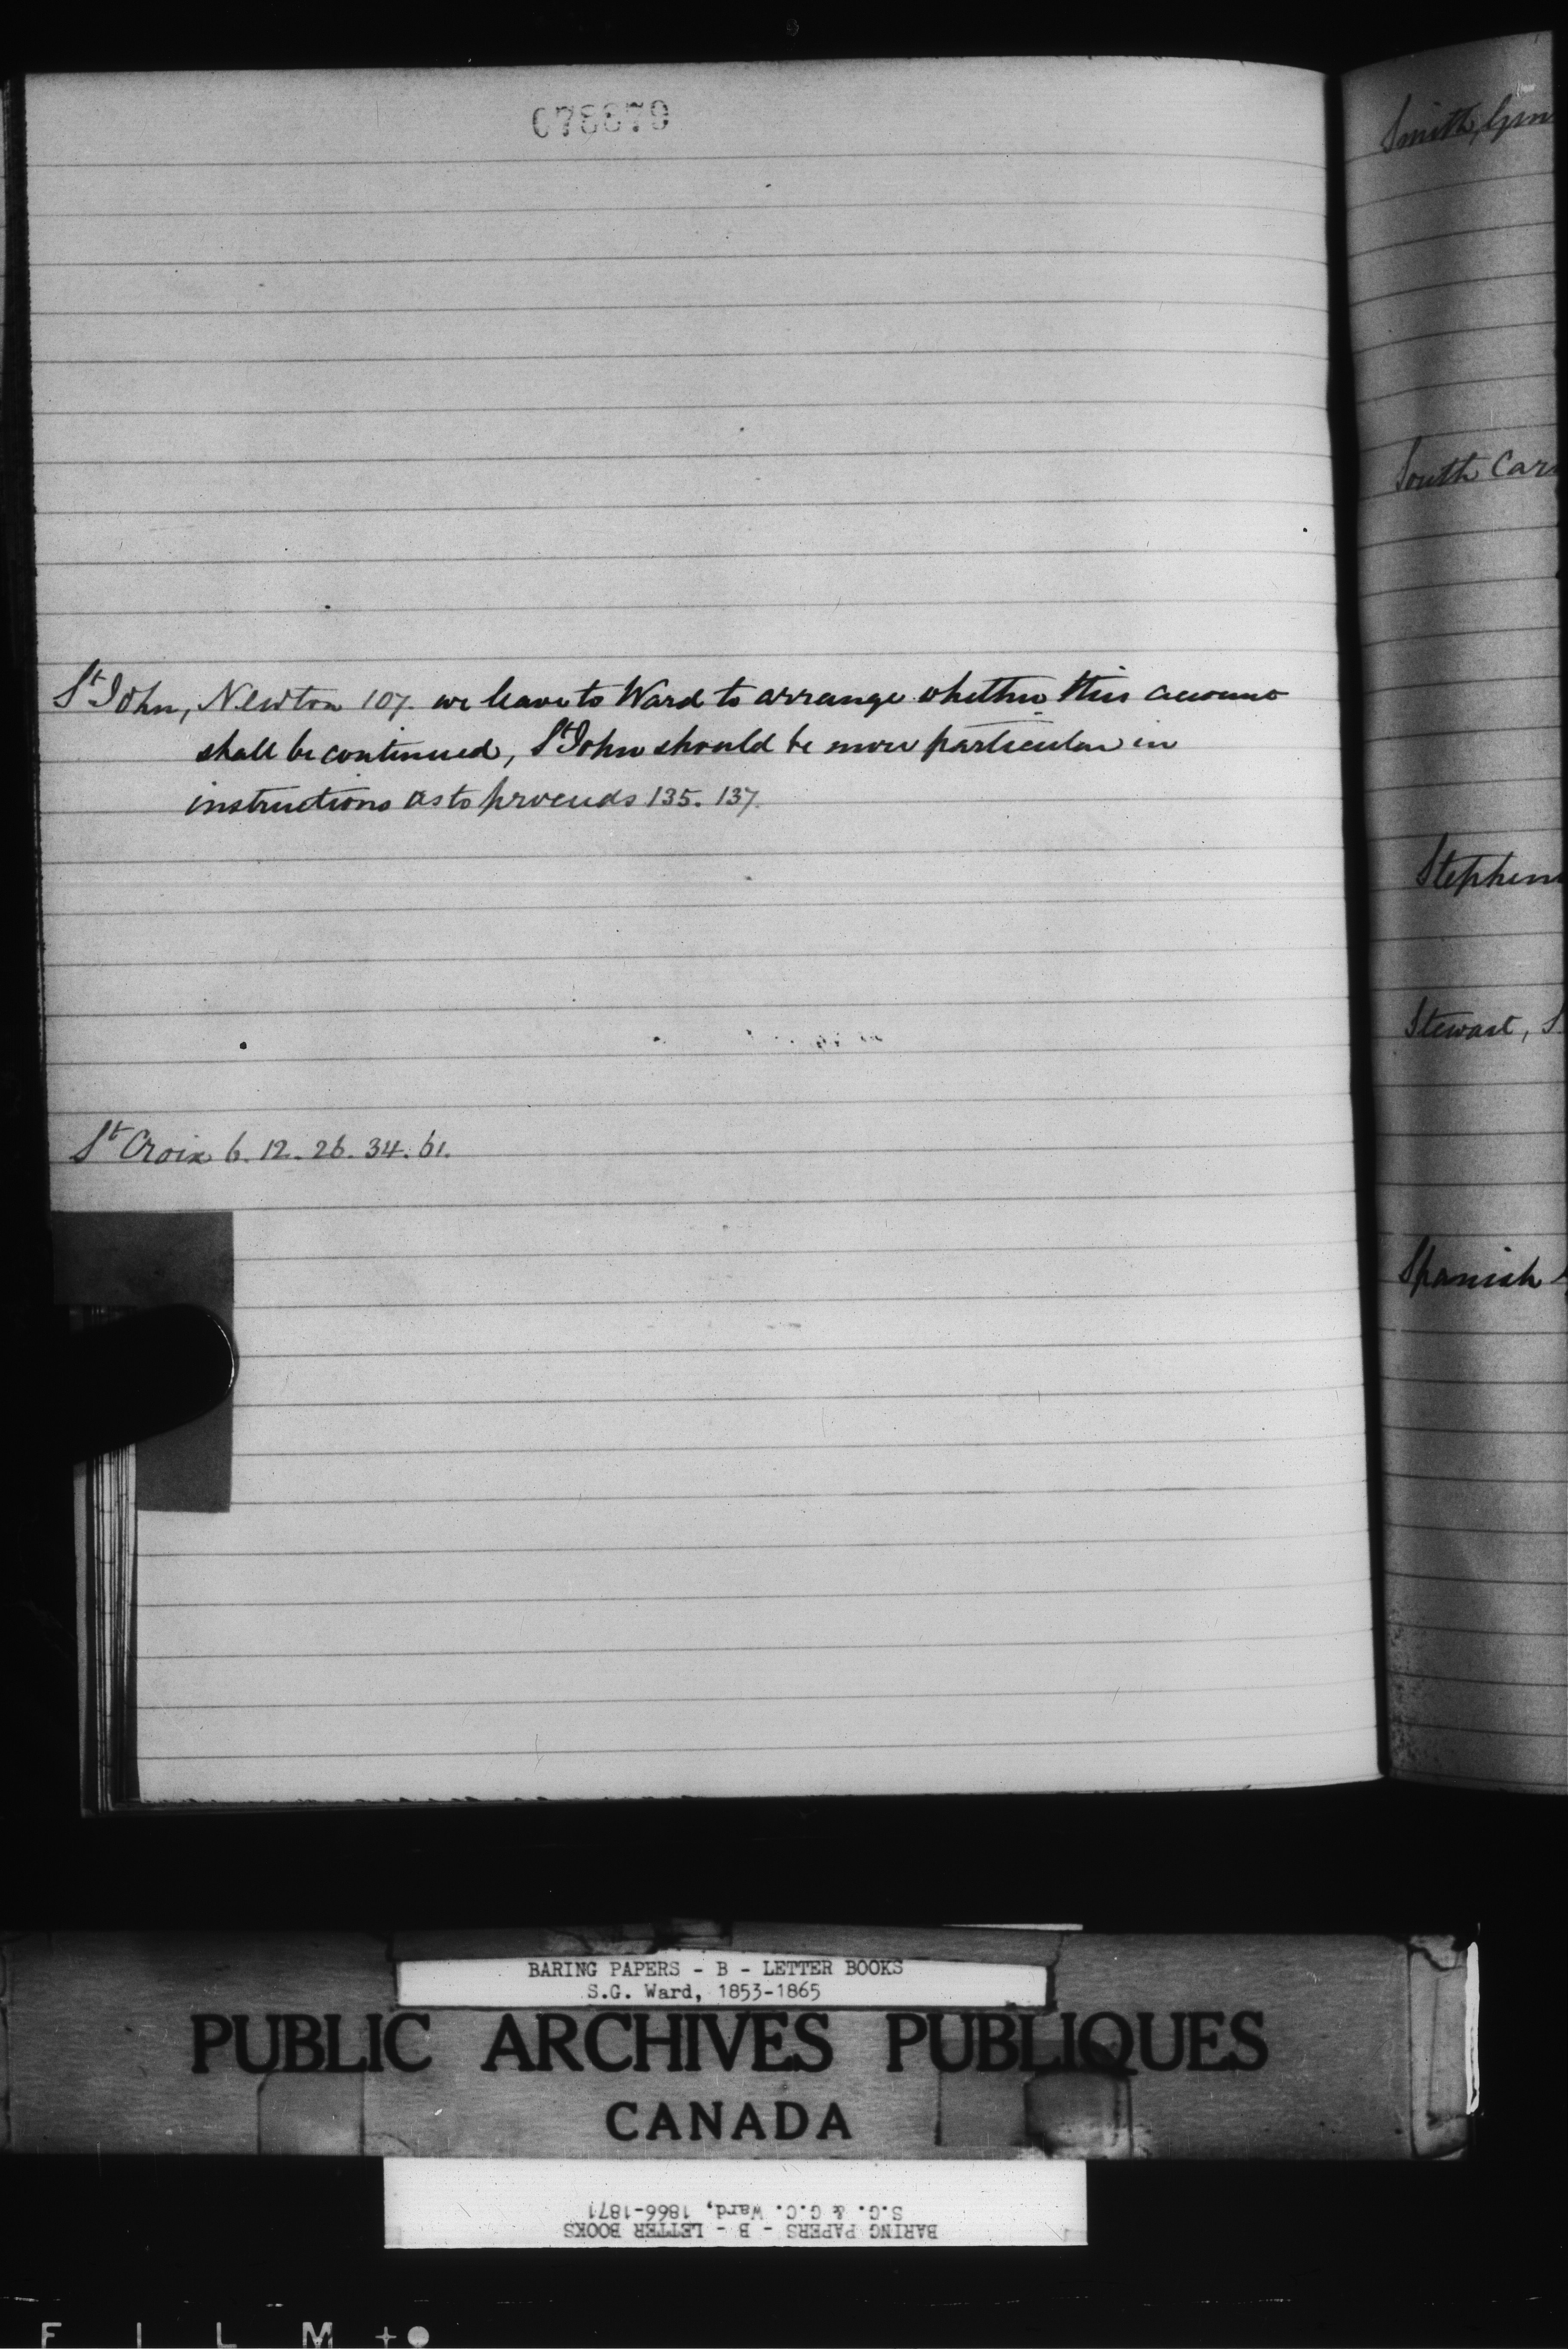 St John, Newton 107. we leave to Ward to arrange whether this account
shall be continued, St John should be more particular in
instructions as to proceeds 135. 137.
St Croix 6. 12. 26. 34. 61.
Smith,
South Car
Stephen
Stewart, S
Spanish
BARING PAPERS - B - LETTER BOOKS
S.G. Ward, 1853-1865
PUBLIC ARCHIVES PUBLIQUES
CANADA
BARING PAPERS - B - LETTER BOOKS
S.G. & G.C. Ward, 1866-1871
FILM